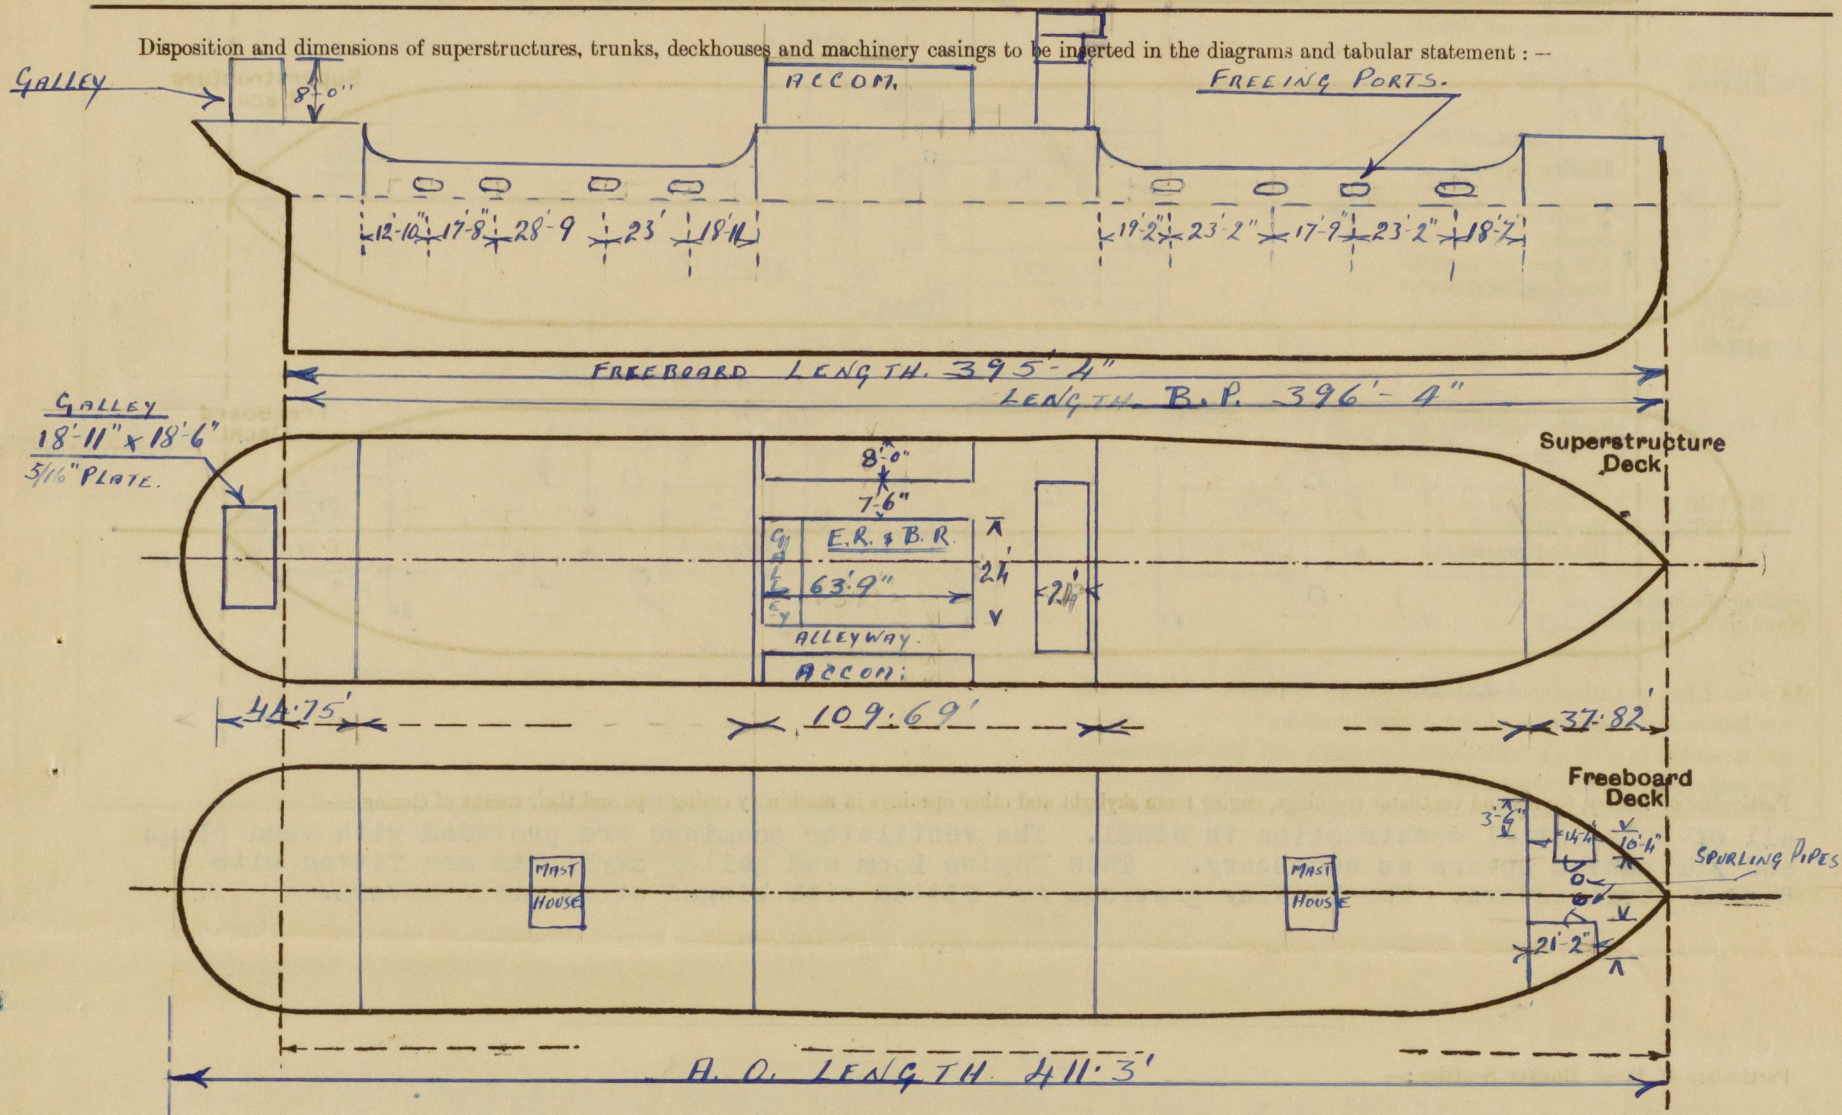 Disposition and dimensions of superstructures, trunks, deckhouses and machinery casings to be inserted in the diagrams and tabular statement : —
GALLEY
8'-0"
ACCOM.
FREEING PORTS.
12'-10" 17'-8" 28'-9 23' 18'-11
19'-2" 23'-2" 17'-9" 23'-2" 18'-7"
FREEBOARD LENGTH. 395'-4"
LENGTH. B.P. 396'-4"
GALLEY
18'-11" x 18'-6"
5/16" PLATE.
Superstructure
Deck
8'-0"
7'-6"
GALLEY
E.R. & B.R.
63'-9"
24'
ALLEYWAY.
ACCOM:
44.75' 109.69' 37.82'
Freeboard
Deck
3'-6"
14'-4"
10'-4"
SPURLING PIPES
MAST
HOUSE
MAST
HOUSE
21'-2"
A. O. LENGTH. 411.3'